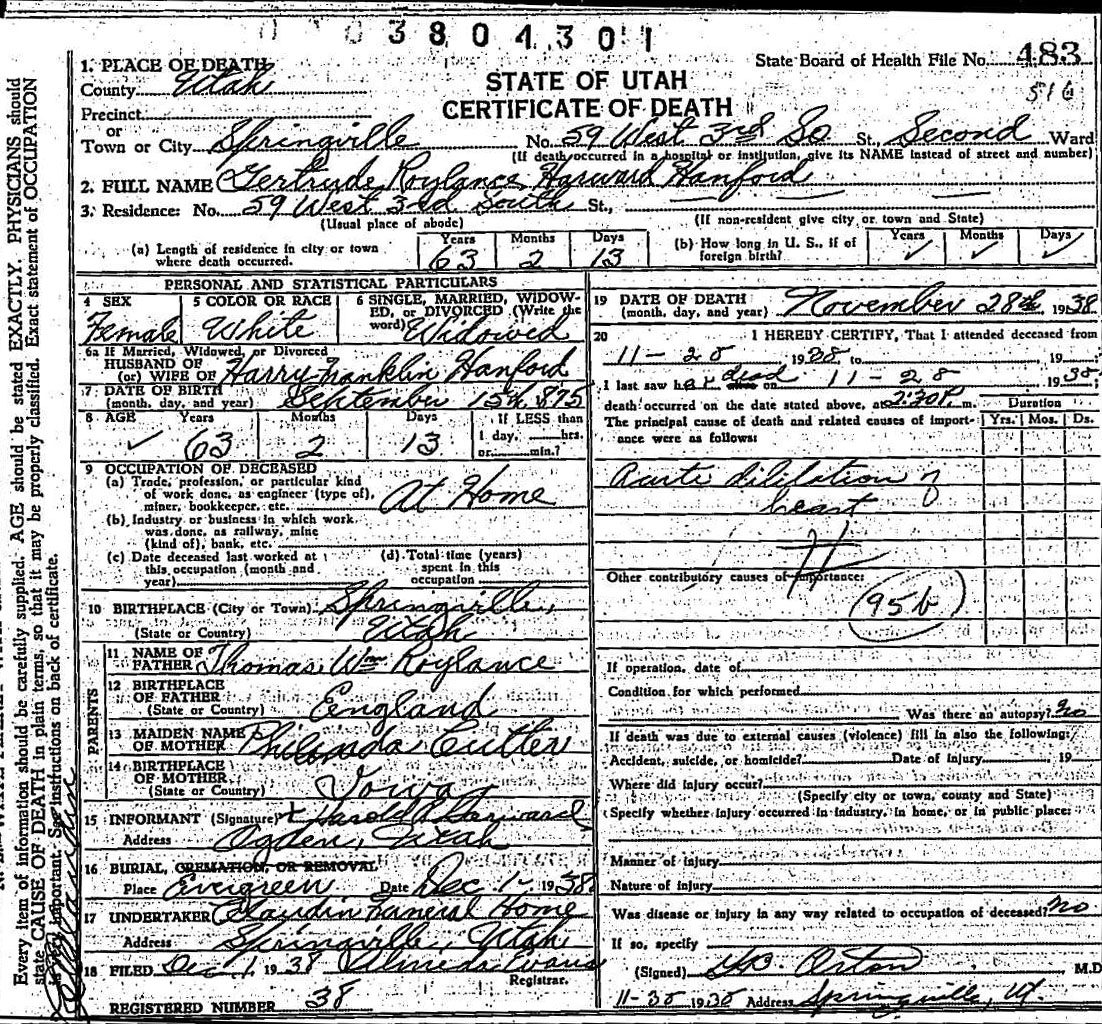 3804301
State Board of Health File No. 483
516
STATE OF UTAH
CERTIFICATE OF DEATH
1. PLACE OF DEATH
County Utah
Precinct
or
Town or City Springville No. 59 West 3rd So St., Second Ward
(If death occurred in a hospital or institution, give its NAME instead of street and number)
2. FULL NAME Gertrude Roylance Harward Hanford
3. Residence: No. 59 West 3rd South St.,
(Usual place of abode) (If non-resident give city or town and State)
(a) Length of residence in city or town where death occurred. Years 63 Months 2 Days 13
(b) How long in U. S., if of foreign birth? Years ✓ Months ✓ Days ✓
PERSONAL AND STATISTICAL PARTICULARS
4 SEX Female
5 COLOR OR RACE White
6 SINGLE, MARRIED, WIDOWED, or DIVORCED (Write the word) Widowed
6a If Married, Widowed, or Divorced
HUSBAND OF
(or) WIFE OF Harry Franklin Hanford
7 DATE OF BIRTH
(month, day, and year) September 15th 875
8 AGE Years Months Days If LESS than
✓ 63 2 13 1 day, hrs.
or min.?
9 OCCUPATION OF DECEASED
(a) Trade, profession, or particular kind
of work done, as engineer (type of),
miner, bookkeeper, etc. At Home
(b) Industry or business in which work
was done, as railway, mine
(kind of), bank, etc.
(c) Date deceased last worked at
this occupation (month and
year)
(d) Total time (years)
spent in this
occupation
10 BIRTHPLACE (City or Town) Springville,
(State or Country) Utah
PARENTS
11 NAME OF
FATHER Thomas Wm Roylance
12 BIRTHPLACE
OF FATHER
(State or Country) England
13 MAIDEN NAME
OF MOTHER Philinda Cutler
14 BIRTHPLACE
OF MOTHER
(State or Country) Iowa
15 INFORMANT (Signature) Harold Harward
Address Ogden, Utah
16 BURIAL, CREMATION, OR REMOVAL
Place Evergreen Date Dec 1 - 1938
17 UNDERTAKER Claudin Funeral Home
Address Springville, Utah
18 FILED Dec 1, 1938 Almeda Evans
Registrar.
REGISTERED NUMBER 38
19 DATE OF DEATH
(month, day, and year) November 28th, 1938
20 I HEREBY CERTIFY, That I attended deceased from
11-28 1938 to 19
I last saw her dead on 11-28 1938
death occurred on the date stated above, at 2:30 P. m.
Duration
The principal cause of death and related causes of importance were as follows: Yrs. Mos. Ds.
Acute dilitation of
heart
Other contributory causes of importance:
95b
If operation, date of
Condition for which performed
Was there an autopsy? No
If death was due to external causes (violence) fill in also the following:
Accident, suicide, or homicide? Date of injury 19
Where did injury occur?
(Specify city or town, county and State)
Specify whether injury occurred in industry, in home, or in public place:
Manner of injury
Nature of injury
Was disease or injury in any way related to occupation of deceased? No
If so, specify
(Signed) Orton M.D.
11-30 1938 Address Springville, Ut.
Every item of information should be carefully supplied. AGE should be stated EXACTLY. PHYSICIANS should
state CAUSE OF DEATH in plain terms, so that it may be properly classified. Exact statement of OCCUPATION
is very important. See instructions on back of certificate.